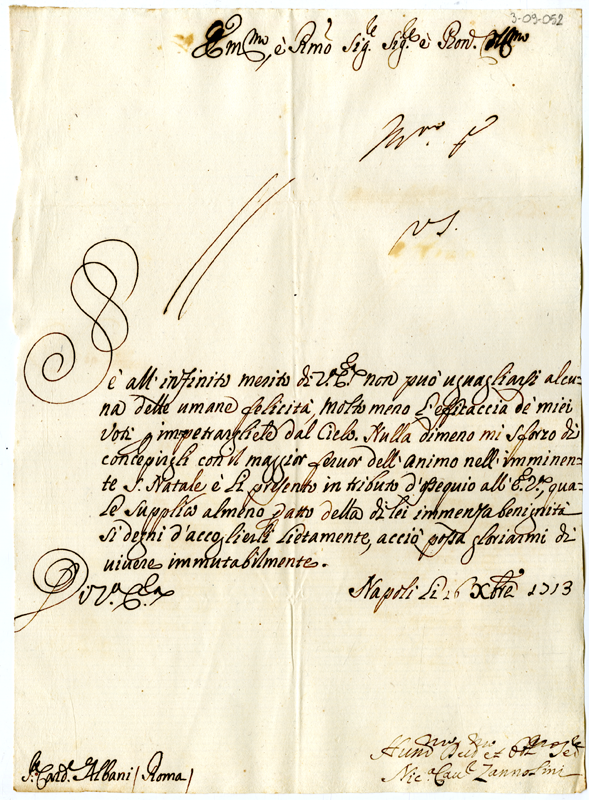 3-09-052
Em.mo, è Rmo Sig.re Sig.re è Pron. Col.mo
Se all'infinito merito di V.ra Em.a non può uguagliarsi alcu-
na delle umane felicità, molto meno l'efficaccia de miei
voti p impetrargliele dal Cielo. Nulla dimeno mi sforzo di
concepirgli con il maggior fervor dell'animo nell'imminen-
te S. Natale è Li presento in tributo d'ossequio all'E.V., qua-
le supplico almeno darto della di lei immensa benignità
si degni d'accoglierli lietamente, acciò possa gloriarmi di
vivere immutabilmente.
Di V.ra Em.a
Napoli Li 16 Xbre 1713
S.r Card. Albani (Roma)
Hum.mo Dev.mo et Obl.mo Ser.re
Nic.a Cau.e Zannolini